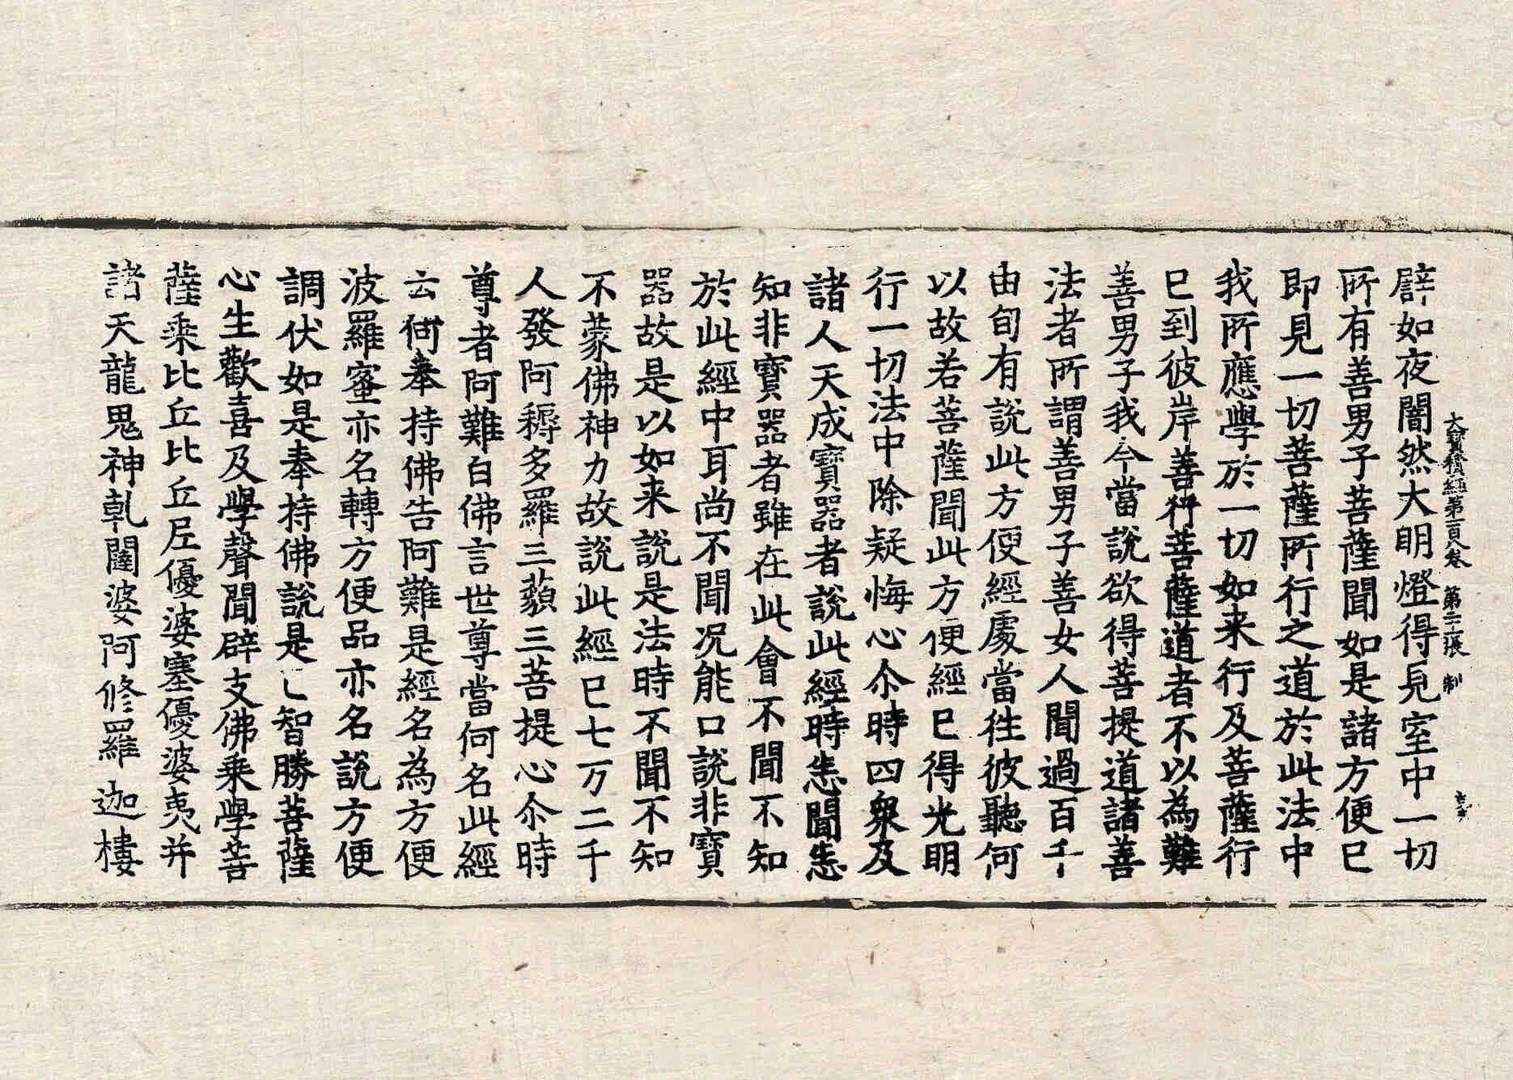 大寶積經第一百八卷 第三十二張 制
譬如夜闇然大明燈得見室中一切
所有善男子菩薩聞如是諸方便已
即見一切菩薩所行之道於此法中
我所應學於一切如来行及菩薩行
已到彼岸善行菩薩道者不以為難
善男子我今當說欲得菩提道諸善
法者所謂善男子善女人聞過百千
由旬有說此方便經處當往彼聽何
以故若菩薩聞此方便經已得光明
行一切法中除疑悔心尒時四衆及
諸人天成寶器者說此經時悉聞悉
知非寶器者雖在此會不聞不知
於此經中耳尚不聞况能口說非寶
器故是以如来說是法時不聞不知
不蒙佛神力故說此經已七万二千
人發阿耨多羅三藐三菩提心尒時
尊者阿難白佛言世尊當何名此經
云何奉持佛告阿難是經名為方便
波羅蜜亦名轉方便品亦名說方便
調伏如是奉持佛說是已智勝菩薩
心生歡喜及學聲聞辟支佛乘學菩
薩乘比丘比丘尼優婆塞優婆夷并
諸天龍鬼神乹闥婆阿修羅迦樓